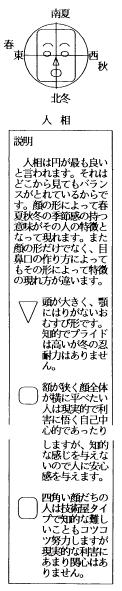 南夏
春
東
西
秋
北冬
人相
説明
人相は円が最も良い
と言われます。それは
どこから見てもバラン
スがとれているからで
す。顔の形によって春
夏秋冬の季節感の持つ
意味がその人の特徴と
なって現れます。また
顔の形だけでなく、目
鼻口の作り方によって
もその形によって特徴
の現れ方が違います。
頭が大きく、顎
にはりがないお
むすび形です。
知的でプライド
は高いが冬の忍
耐力はありませ
ん。
額が狭く顔全体
が横に平べたい
人は現実的で利
害に悟く自己中心
的であったり
しますが、知的
な感じを与えな
いので人に安心
感を与えます。
四角い顔だちの
人は技術屋タイ
プで知的な難し
いこともコツコ
ツ努力しますが
現実的な利害に
あまり関心はあ
りません。